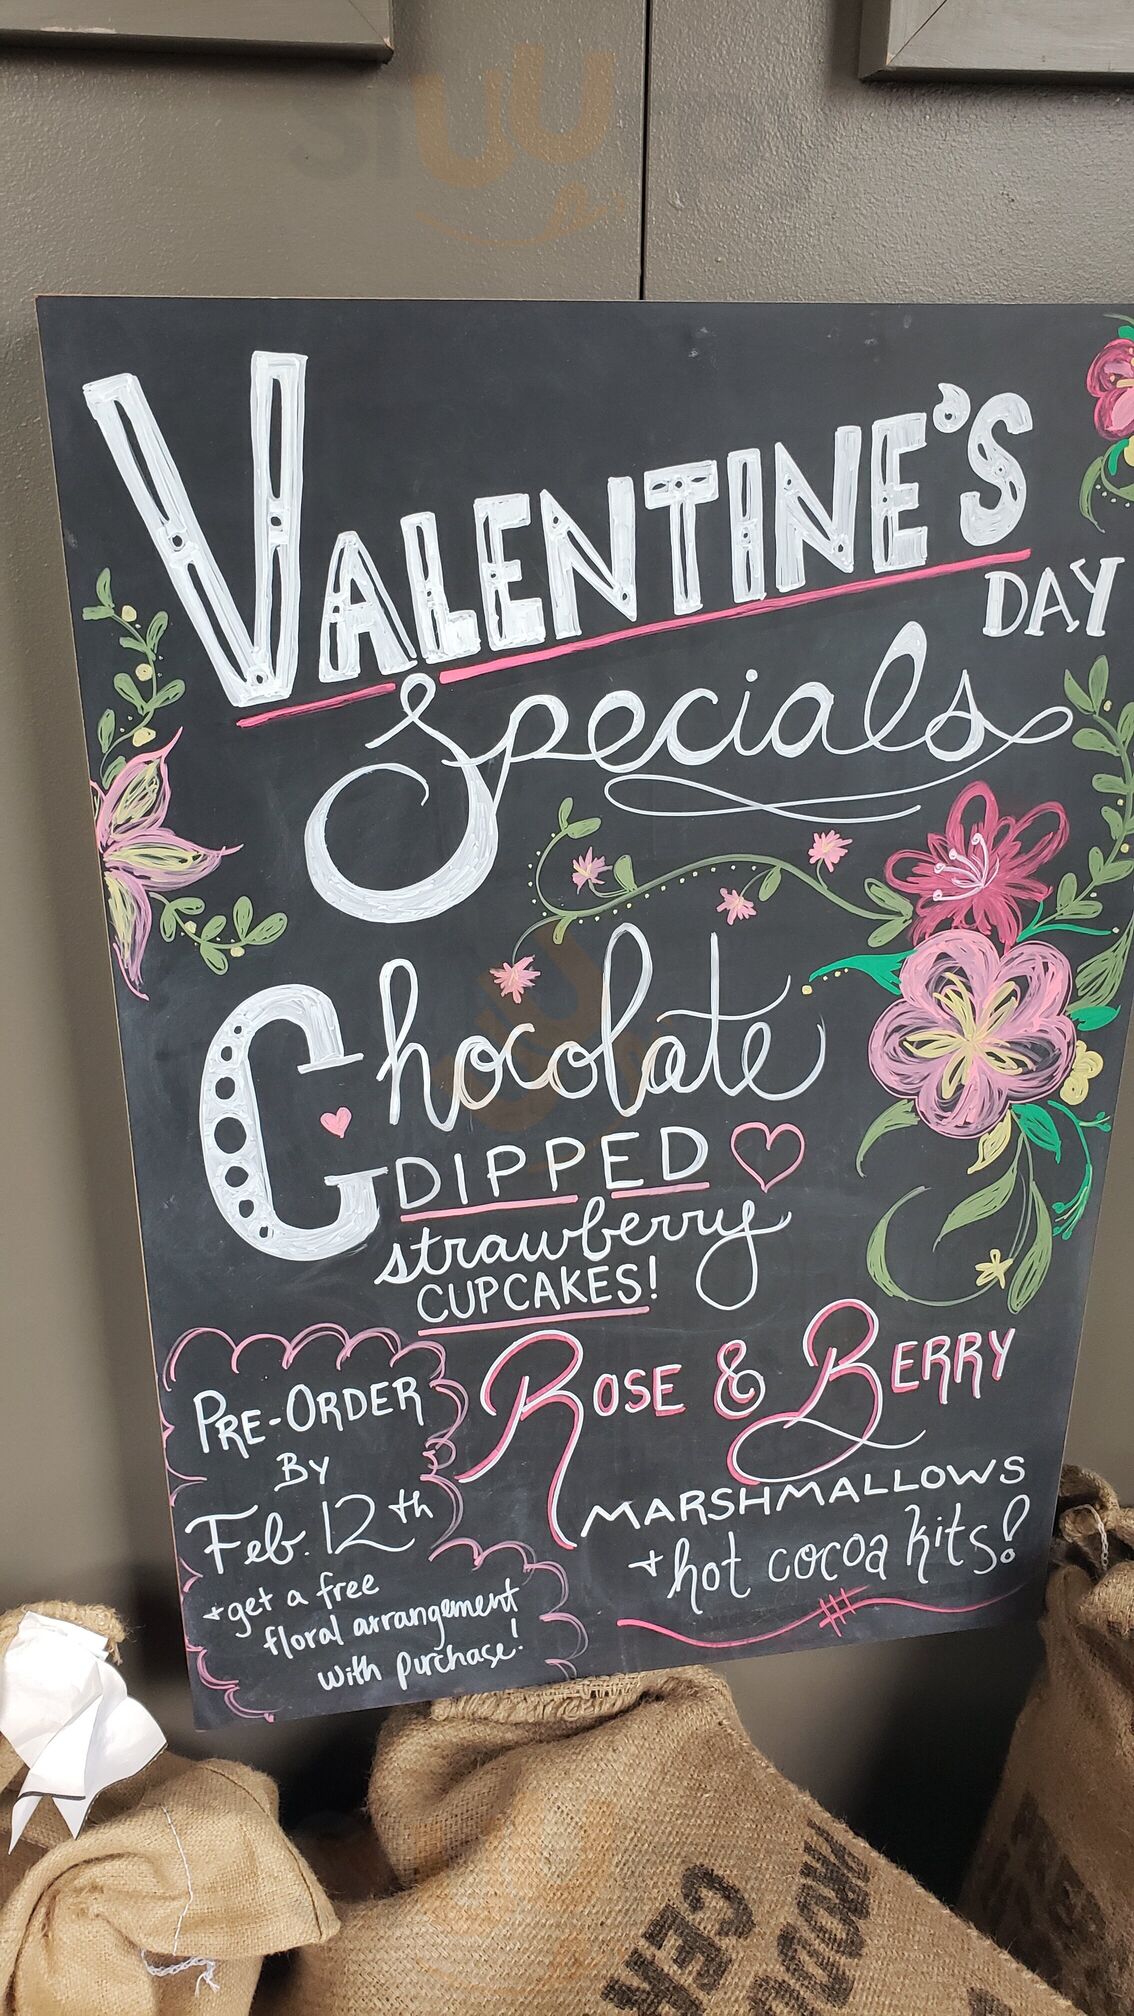 VALENTINE'S
DAY
Specials
Chocolate
DIPPED
strawberry
CUPCAKES!
PRE-ORDER
BY
Feb. 12th
+ get a free
floral arrangement
with purchase!
ROSE & BERRY
MARSHMALLOWS
+ hot cocoa kits!